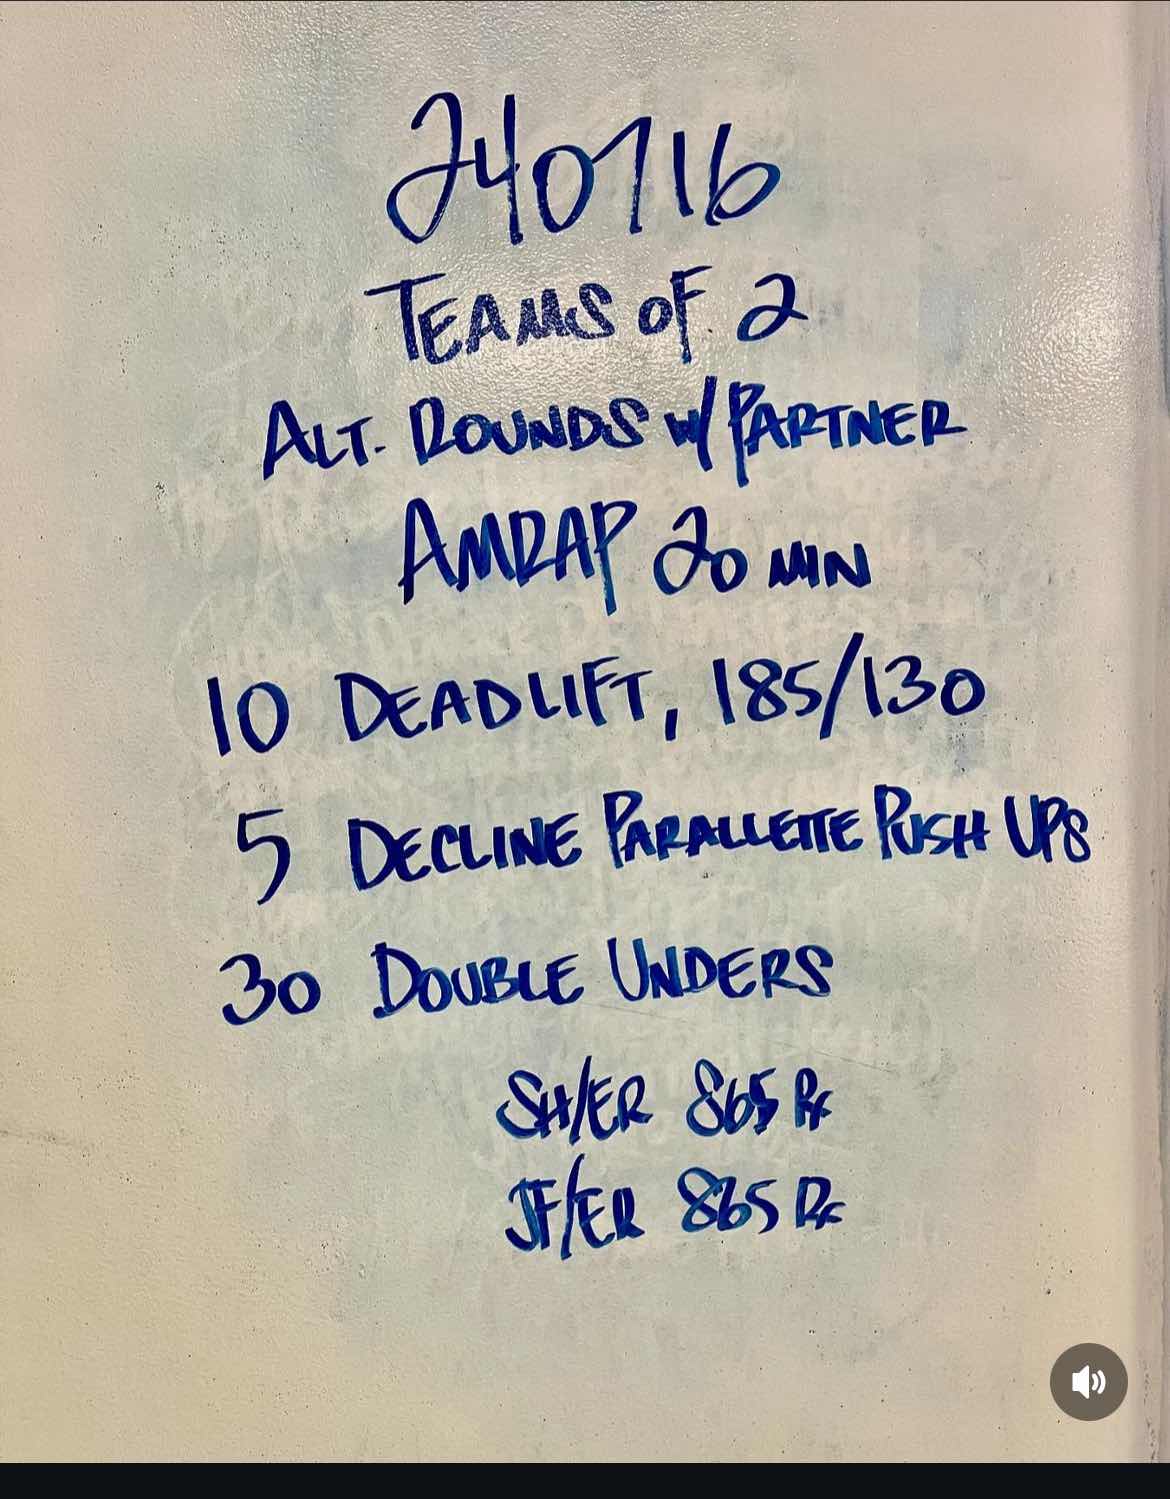 240716
TEAMS OF 2
ALT. ROUNDS W/ PARTNER
AMRAP 20 MIN
10 DEADLIFT, 185/130
5 DECLINE PARALLETTE PUSH UPS
30 DOUBLE UNDERS
SH/ER 865 Rx
JF/ER 865 Rx